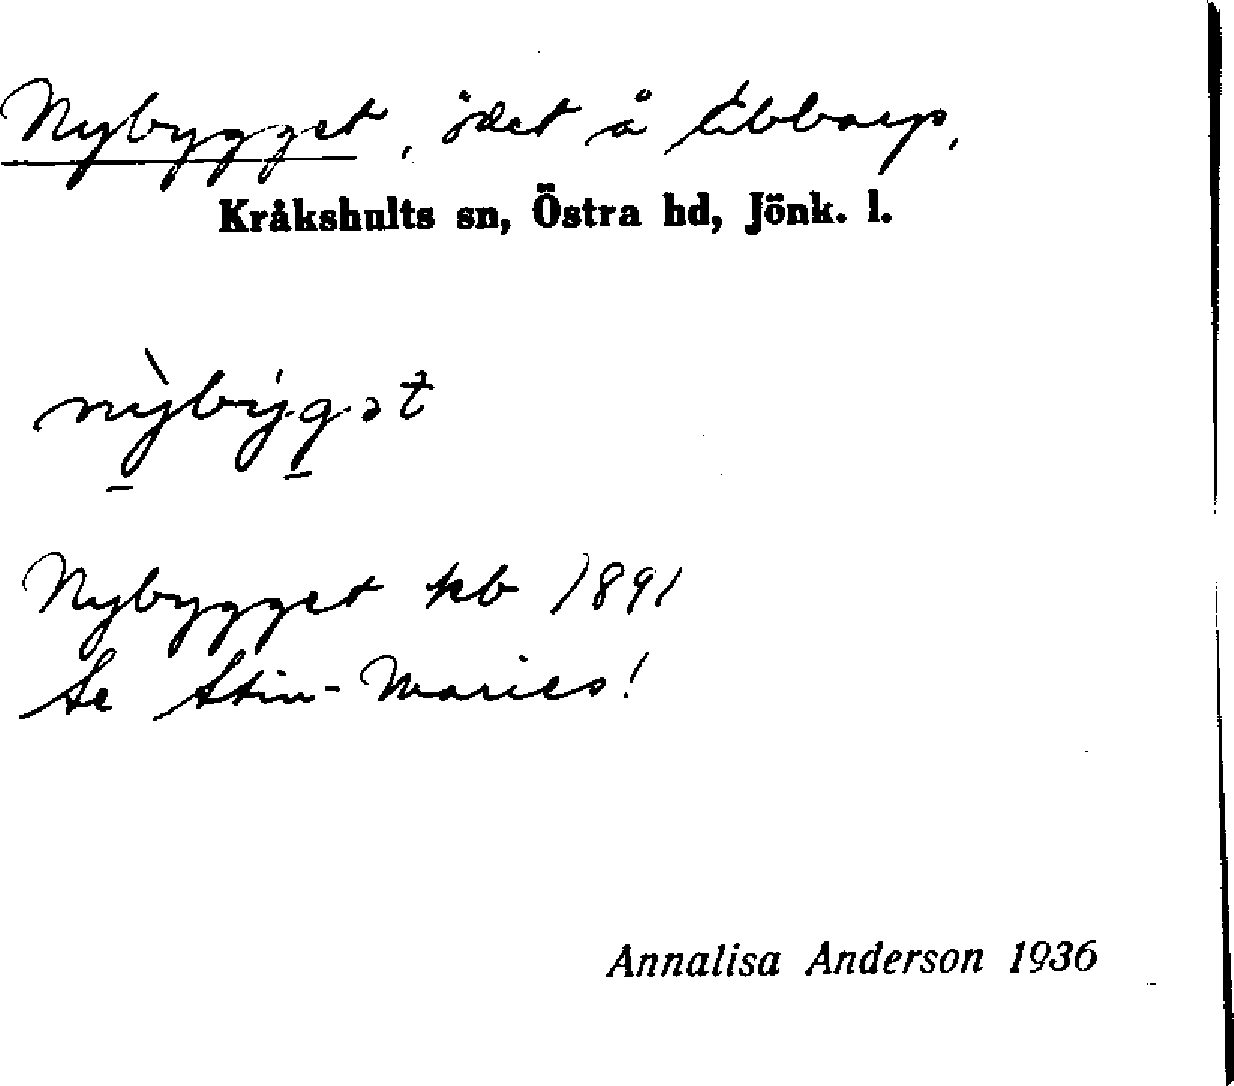 Nybygget, ödet å Ubbarp,
Kråkshults sn, Östra hd, Jönk. l.
nỳbýgət
Nybygget kb 1891
Se Stin-Maries!
Annalisa Anderson 1936